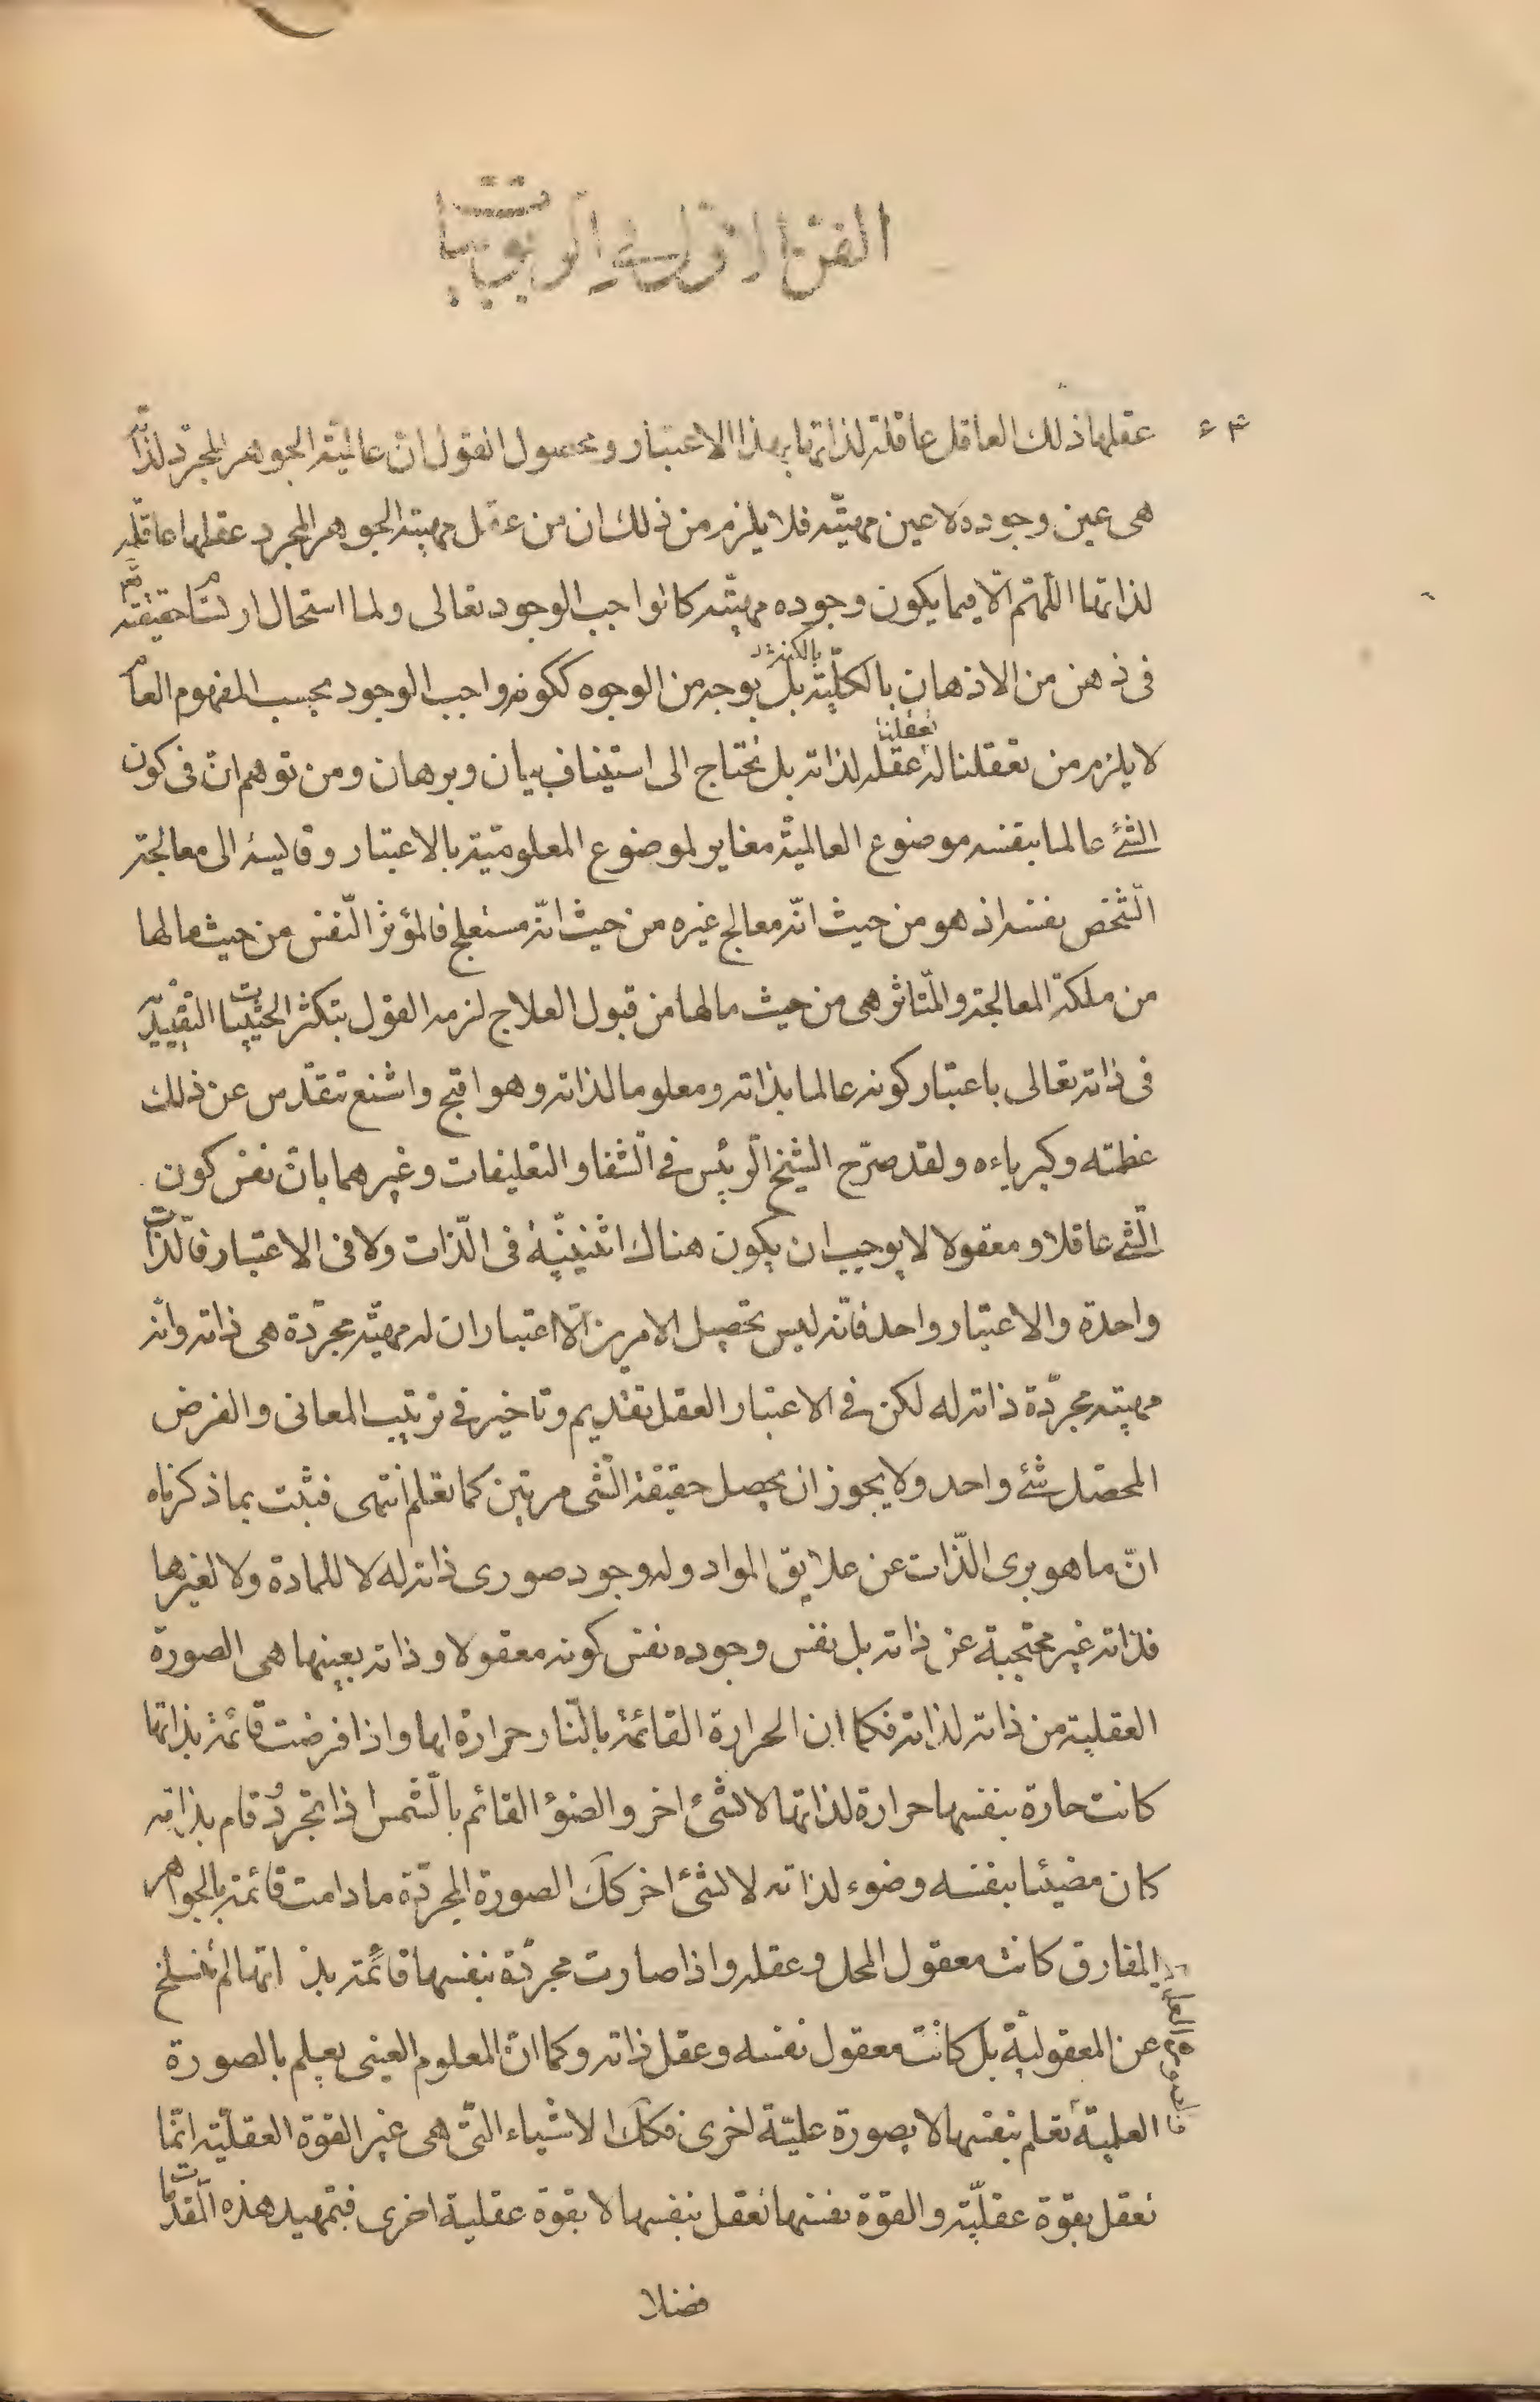 الفن الاول فی الربوبیات
عقلها ذلك العاقل عاقلة لذاتها بهذا الاعتبار ومحصول القول ان عالمیة الجوهر المجرد لذاته
هی عین وجوده لا عین مهیته فلا یلزم من ذلك ان من عقل مهیة الجوهر المجرد عقلها عاقلة
لذاتها اللهم الا فیما یكون وجوده مهیته كالواجب الوجود تعالی ولما استحال ارتسام حقیقته تعم
فی ذهن من الاذهان بالكلیة بالكنه بل بوجه من الوجوه ككونه واجب الوجود بحسب المفهوم العام
لا یلزم من تعقلنا له تعقلنا عقله لذاته بل نحتاج الی استیناف بیان وبرهان ومن توهم ان فی كون
الشئ عالما بنفسه موضوع العالمیة مغایر لموضوع المعلومیة بالاعتبار وقایسه الی معالجة
الشخص نفسه اذ هو من حیث انه معالج غیره من حیث انه مستعلج فالمؤثر النفس من حیث مالها
من ملكة المعالجة والمتاثر هی من حیث مالها من قبول العلاج لزمه القول بتكثر الحیثیات التقییدیة
فی ذاته تعالی باعتبار كونه عالما بذاته ومعلوما لذاته وهو اقبح واشنع تتقدس عن ذلك
عظمته وكبریاءه ولقد صرح الشیخ الرئیس فی الشفا والتعلیقات وغیرهما بان نفس كون
الشئ عاقلا ومعقولا لا یوجب ان یكون هناك اثنینیة فی الذات ولا فی الاعتبار فالذات
واحدة والاعتبار واحد فانه لیس تحصیل الامرین الا اعتبار ان له مهیة مجردة هی ذاته وانه
مهیة مجردة ذاته له لكن فی الاعتبار العقل تقدیم وتاخیر فی ترتیب المعانی والغرض
المحصل شئ واحد ولا یجوز ان یحصل حقیقة الشئ مرتین كما تعلم انتهی فثبت بما ذكرناه
ان ما هو بری الذات عن علایق المواد وله وجود صوری ذاته له لا للمادة ولا لغیرها
فذاته غیر محتجبة عن ذاته بل نفس وجوده نفس كونه معقولا وذاته بعینها هی الصورة
العقلیة من ذاته لذاته فكما ان الحرارة القائمة بالنار حرارة لها واذا فرضت قائمة بذاتها
كانت حارة بنفسها حرارة لذاتها لا لشئ اخر والضوء القائم بالشمس اذا تجرد وقام بذاته
كان مضیئا بنفسه وضوء لذاته لا لشئ اخر كك الصورة المجردة مادامت قائمة بالجواهر
المفارق كانت معقول المحل وعقله واذا صارت مجردة بنفسها قائمة بذاتها لم ینسلخ
عن المعقولیة بل كانت معقول نفسه وعقل ذاته وكما ان المعلوم العینی یعلم بالصورة
العلمیة تعلم بنفسها لا بصورة علمیة اخری فكك الاشیاء التی هی غیر القوة العقلیة انما
تعقل بقوة عقلیة والقوة نفسها تعقل بنفسها لا بقوة عقلیة اخری فبتمهید هذه المقدمات
فضلا